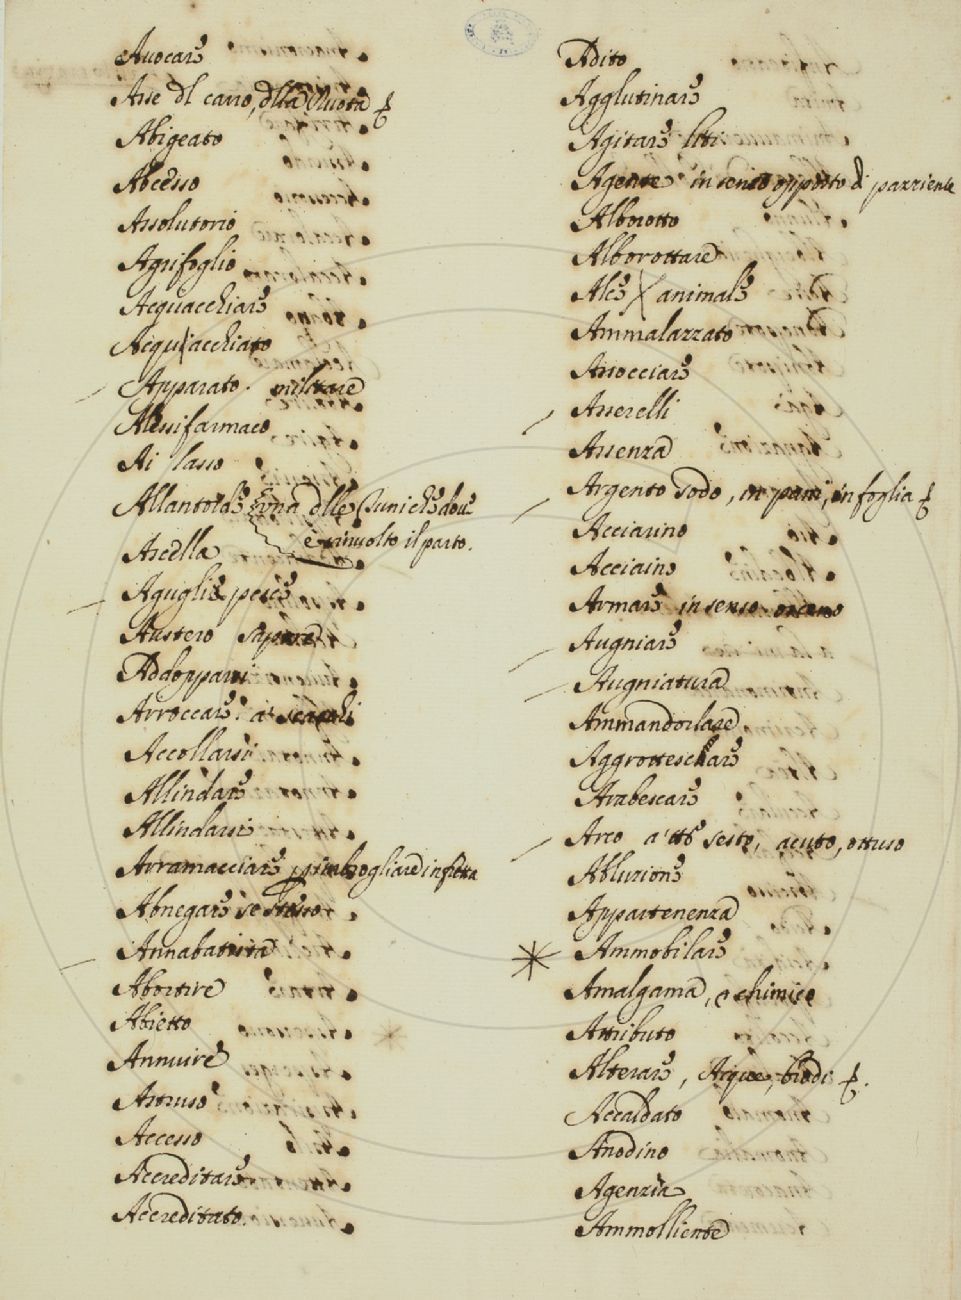 Avocare
Asse dl carro, dlla Ruota
Abigeato
Abcesso
Assolutorio
Agrifoglio
Acquacchiare
Acquacchiato
Apparato. militare
Alessifarmaco
Ai lasso
Allantoide
è una dlle
è rinvolto il parto.
Ascella
Aguglie pesce
Austero sapore
Addopparsi
Arroccare. a scacchi
Accollarsi
Allindare
Allindarsi
Arramacciare
Abnegare se stesso
Annabattista
Abortire
Abietto
Annuire
Astruso
Accesso
Accreditare
Accreditato.
Adito
Agglutinare
Agitare liti
Agente in senso opposto di pazziente
Alborotto
Alborottare
Alce animale
Ammalazzato
Assocciare
Asserelli
Assenza
Argento sodo, in pani, in foglia
Acciarino
Acciaino
Armare in senso osceno
Augniare
Augniatura
Ammandorlare
Aggrottescare
Arabescare
Arco a tto sesto, acuto, ottuso
Abluzione
Appartenenza
Ammobilare
Amalgama, chimico
Attributo
Alterare, Acque, brodi
Accaldato
Anodino
Agenzia
Ammolliente